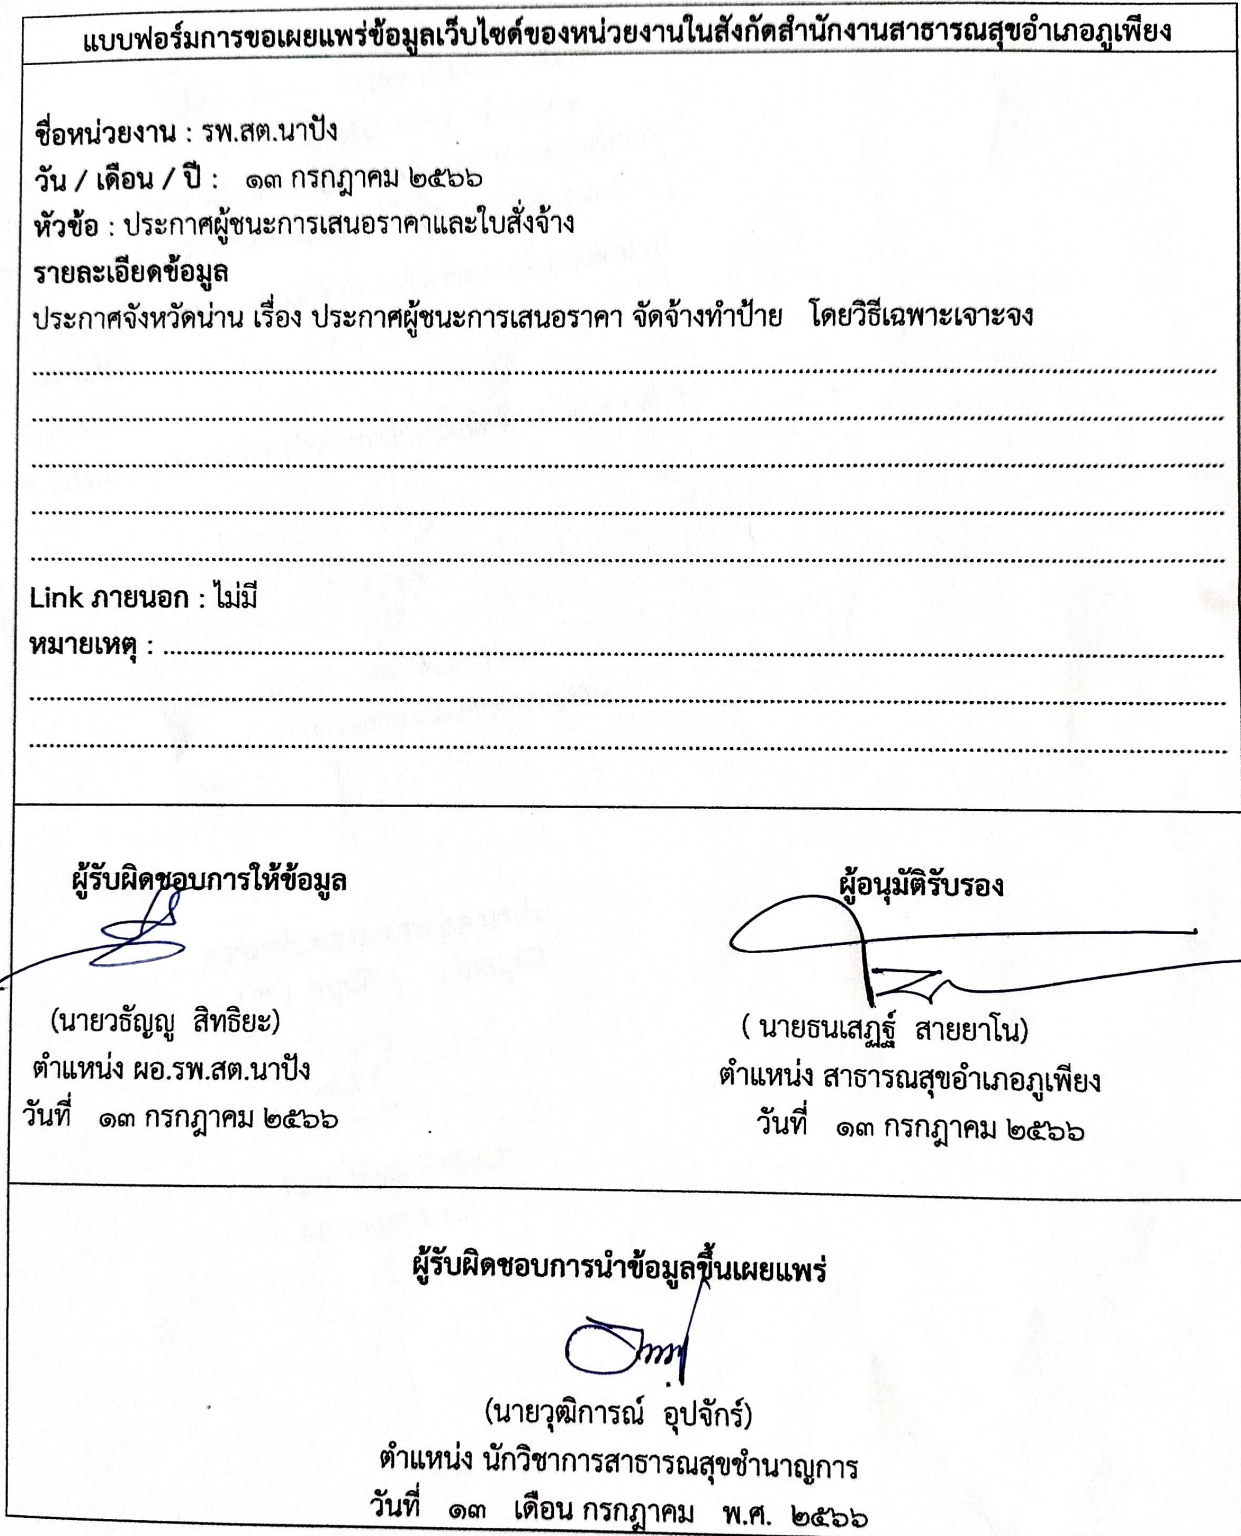 แบบฟอร์มการขอเผยแพร่ข้อมูลเว็บไซด์ของหน่วยงานในสังกัดสำนักงานสาธารณสุขอำเภอภูเพียง
ชื่อหน่วยงาน : รพ.สต.นาปัง
วัน / เดือน / ปี : ๑๓ กรกฎาคม ๒๕๖๖
หัวข้อ : ประกาศผู้ชนะการเสนอราคาและใบสั่งจ้าง
รายละเอียดข้อมูล
ประกาศจังหวัดน่าน เรื่อง ประกาศผู้ชนะการเสนอราคา จัดจ้างทำป้าย โดยวิธีเฉพาะเจาะจง
Link ภายนอก : ไม่มี
หมายเหตุ :
ผู้รับผิดชอบการให้ข้อมูล
(นายวธัญญู สิทธิยะ)
ตำแหน่ง ผอ.รพ.สต.นาปัง
วันที่ ๑๓ กรกฎาคม ๒๕๖๖
ผู้อนุมัติรับรอง
( นายธนเสฏฐ์ สายยาโน)
ตำแหน่ง สาธารณสุขอำเภอภูเพียง
วันที่ ๑๓ กรกฎาคม ๒๕๖๖
ผู้รับผิดชอบการนำข้อมูลขึ้นเผยแพร่
(นายวุฒิการณ์ อุปจักร์)
ตำแหน่ง นักวิชาการสาธารณสุขชำนาญการ
วันที่ ๑๓ เดือน กรกฎาคม พ.ศ. ๒๕๖๖